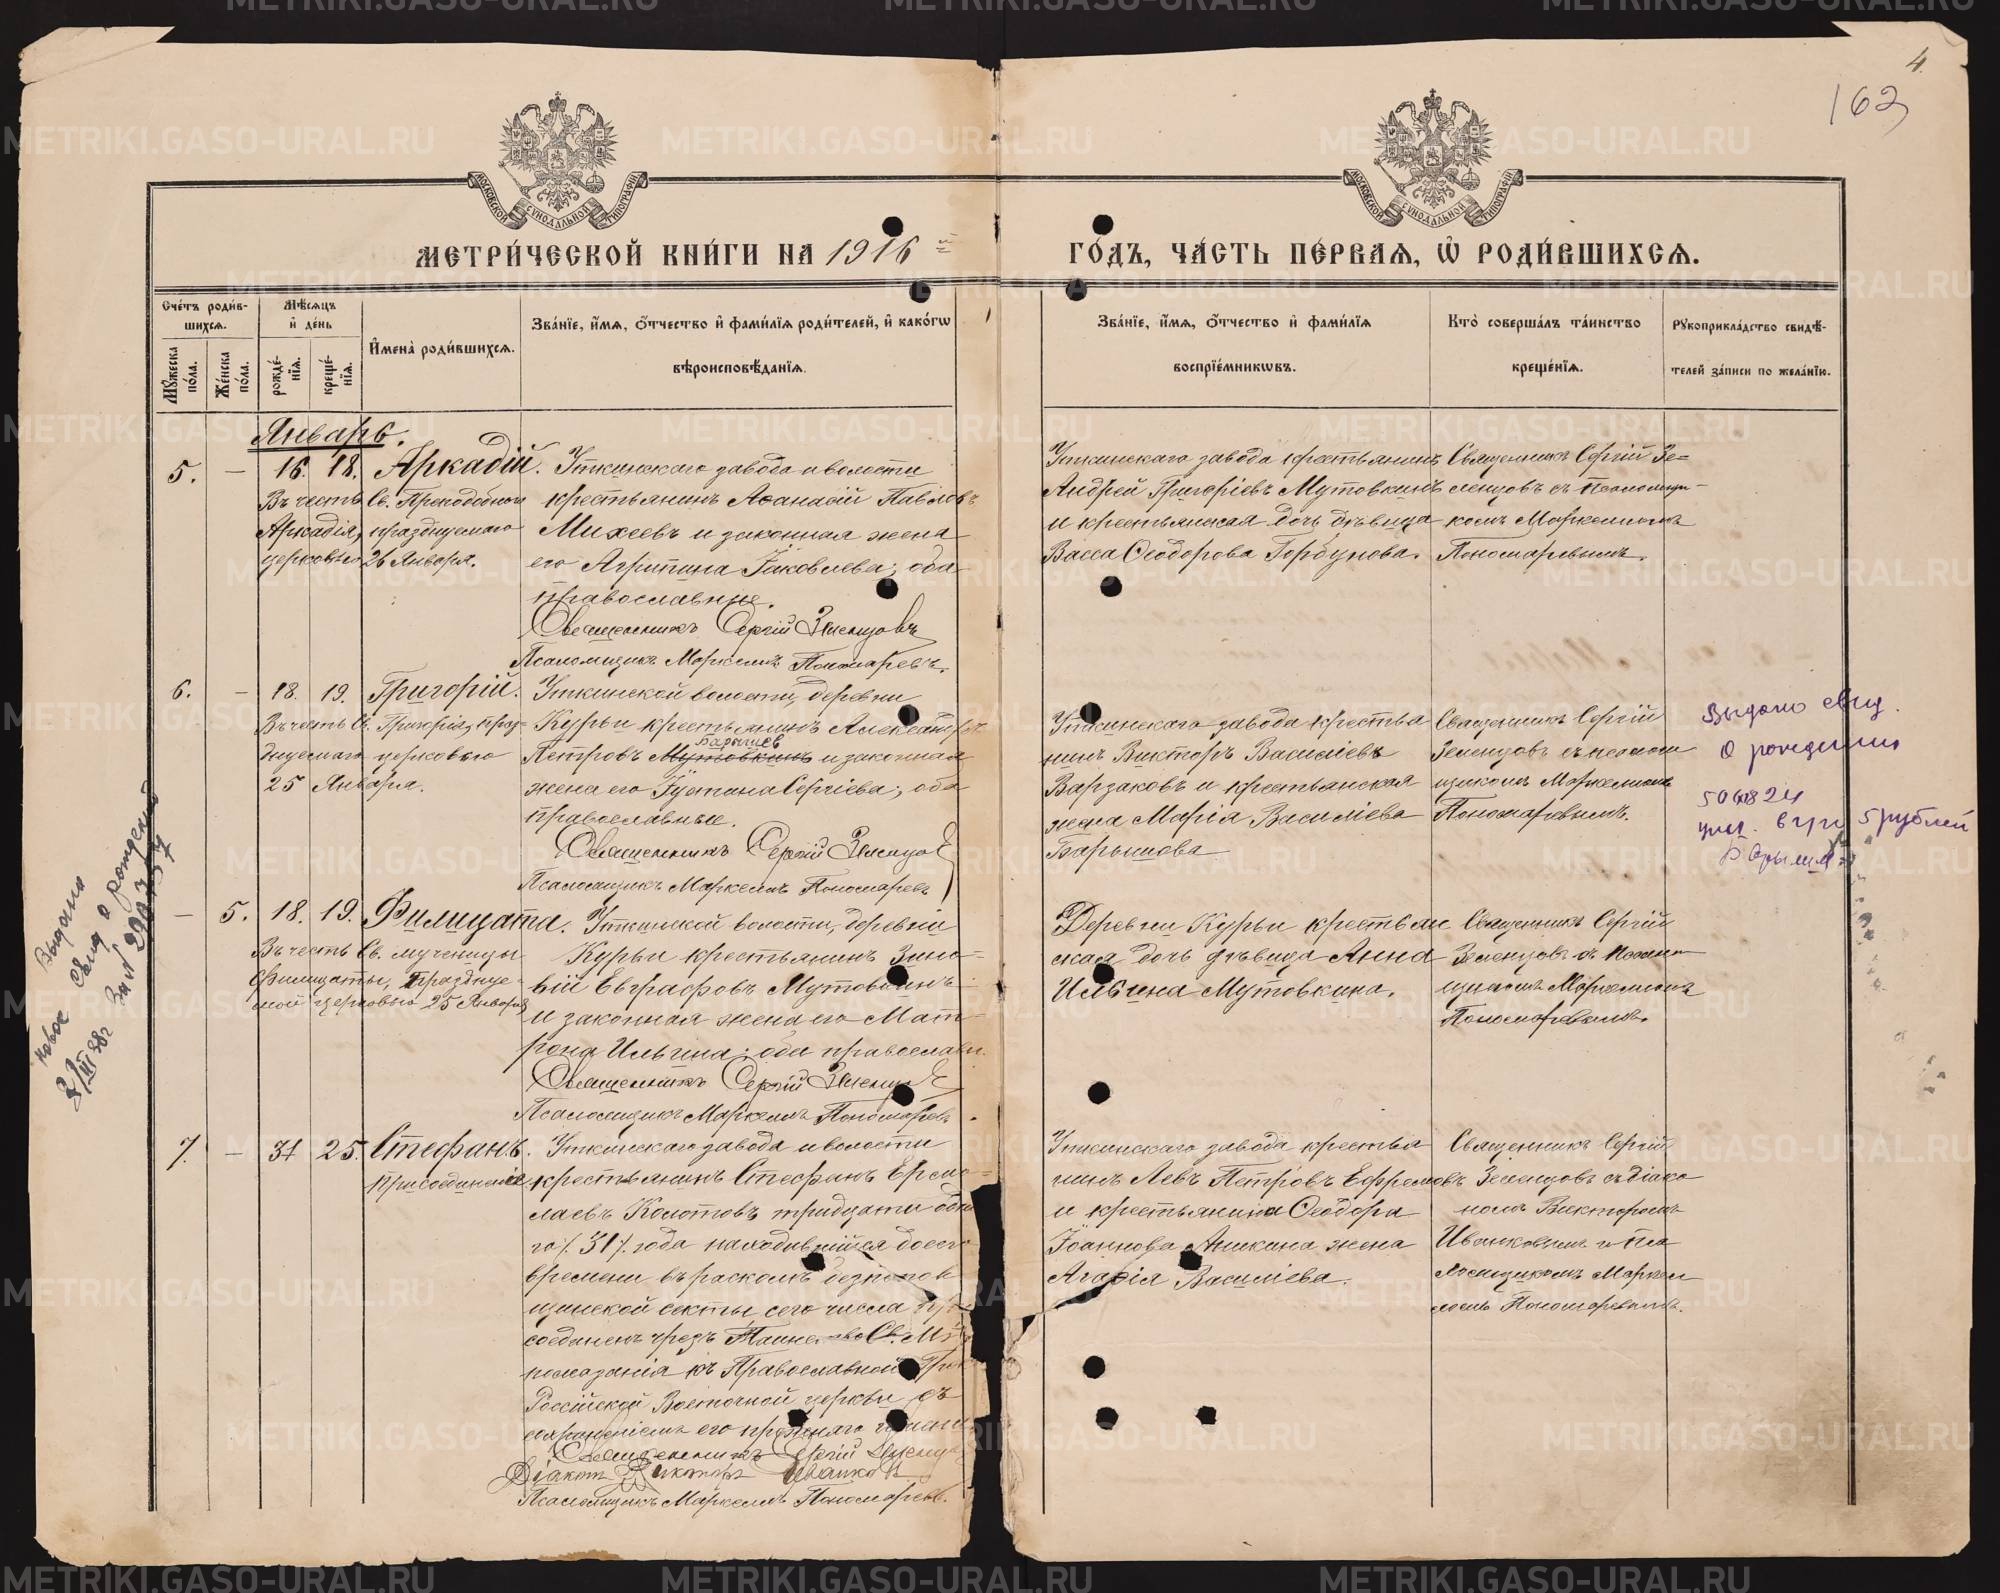 4.
162
МОСКОВСКОЙ СУНОДАЛЬНОЙ ТИПОГРАФІИ
МОСКОВСКОЙ СУНОДАЛЬНОЙ ТИПОГРАФІИ
МЕТРИ́ЧЕСКОЙ КНИ́ГИ НА 1916 й
ГО́ДЪ, ЧА́СТЬ ПЕ́РВАЯ, Ѡ РОДИ́ВШИХСЯ.
Сче́тъ роди́в-
шихся.
Мѣ́сяцъ
и́ де́нь
Мꙋ́жеска
по́ла.
Же́нска
по́ла.
рожде́-
нїя.
креще́-
нїя.
И҆мена̀ роди́вшихся.
Зва́нїе, и҆́мя, ѻ҆́тчество и҆ фами́лїя роди́телей, и҆ како́гѡ
вѣроисповѣ́данїя.
Зва́нїе, и҆́мя, ѻ҆́тчество и҆ фами́лїя
воспрїе́мникѡвъ.
Кто̀ соверша́лъ та́инство
креще́нїя.
Рꙋкоприкла́дство свидѣ́-
телей за́писи по жела́нїю.
Январь.
5. — 16. 18. Аркадій.
Въ честь Св. Преподобнаго
Аркадія, празднуемаго
церковью 26 Января.
Уткинскаго завода и волости
крестьянинъ Аѳанасій Павловъ
Михеевъ и законная жена
его Агрипина Іаковлева; оба
православные.
Священникъ Сергій Зеленцовъ
Псаломщикъ Маркеллъ Пономаревъ.
Уткинскаго завода крестьянинъ
Андрей Григоріевъ Мутовкинъ
и крестьянская дочь дѣвица
Васса Ѳеодорова Горбунова.
Священникъ Сергій Зе-
ленцовъ съ псаломщи-
комъ Маркелломъ
Пономаревымъ.
6. — 18. 19. Григорій.
Въ честь Св. Григорія, праз-
днуемаго церковью
25 Января.
Уткинской волости, деревни
Курьи крестьянинъ Александръ
Барышев
Петровъ Мутовкинъ и законная
жена его Іустина Сергіева; оба
православные.
Священникъ Сергій Зеленцов
Псаломщикъ Маркеллъ Пономаревъ
Уткинскаго завода крестья
нинъ Викторъ Василіевъ
Варзаковъ и крестьянская
жена Марія Василіева
Барышова
Священникъ Сергій
Зеленцовъ съ псалом
щикомъ Маркелломъ
Пономаревымъ.
Выдано свид.
о рождении
5 рублей
— 5. 18. 19. Филицата.
Въ честь Св. мученицы
Филицаты, празднуе-
мой церковью 25 Января
Уткинской волости, деревни
Курьи крестьянинъ Зино-
вій Евграфовъ Мутовкинъ
и законная жена его Мат-
рона Ильина; оба православн.
Священникъ Сергій Зеленцов
Псаломщикъ Маркеллъ Пономаревъ
Деревни Курьи крестьян
ская дочь дѣвица Анна
Ильина Мутовкина.
Священникъ Сергій
Зеленцовъ съ Псалом
щикомъ Маркелломъ
Пономаревымъ.
Выдано
новое свид о рождении
7. — 31 25. Стефанъ.
Присоединеніе
Уткинскаго завода и волости
крестьянинъ Стефанъ Ермо-
лаевъ Колотовъ тридцати одно
го /31/ года находившійся до сего
времени въ расколѣ безпопов
щинской секты сего числа при
соединенъ чрезъ Таинство Св. Мѵ
ропомазанія къ Православной Греко
Россійской Восточной церкви съ
сохраненіемъ его прежняго имени
Священникъ Сергій Зеленцов
Діаконъ Викторъ Иванковъ
Псаломщикъ Маркеллъ Пономаревъ.
Уткинскаго завода крестья
нинъ Левъ Петровъ Ефремовъ
и крестьянина Ѳеодора
Іоаннова Аникина жена
Агафія Василіева.
Священникъ Сергій
Зеленцовъ съ діако
номъ Викторомъ
Иванковымъ и Пса
ломщикомъ Маркел
ломъ Пономаревымъ.
METRIKI.GASO-URAL.RU